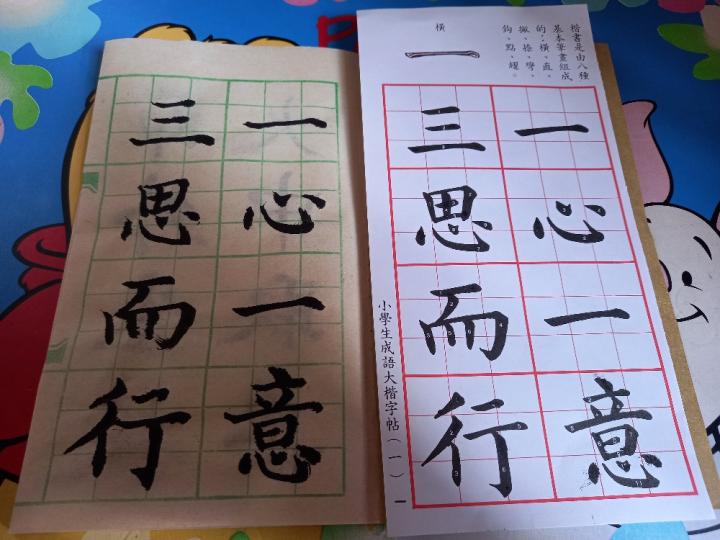 楷書是由八種
基本筆畫組成
的：橫、直、
撇、捺、彎、
鈎、點、
橫
一
一心一意
三思而行
小學生成語大楷字帖（一）一
一心一意
三思而行